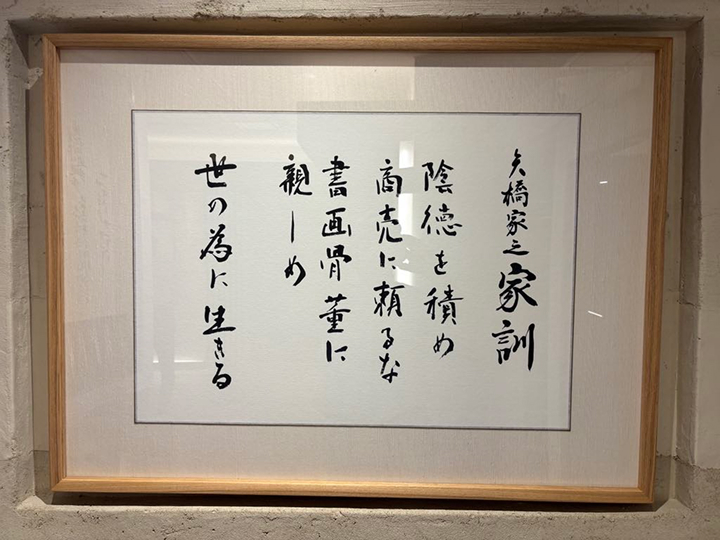 矢橋家之家訓
陰徳を積め
商売に頼るな
書画骨董に
親しめ
世の為に生きる